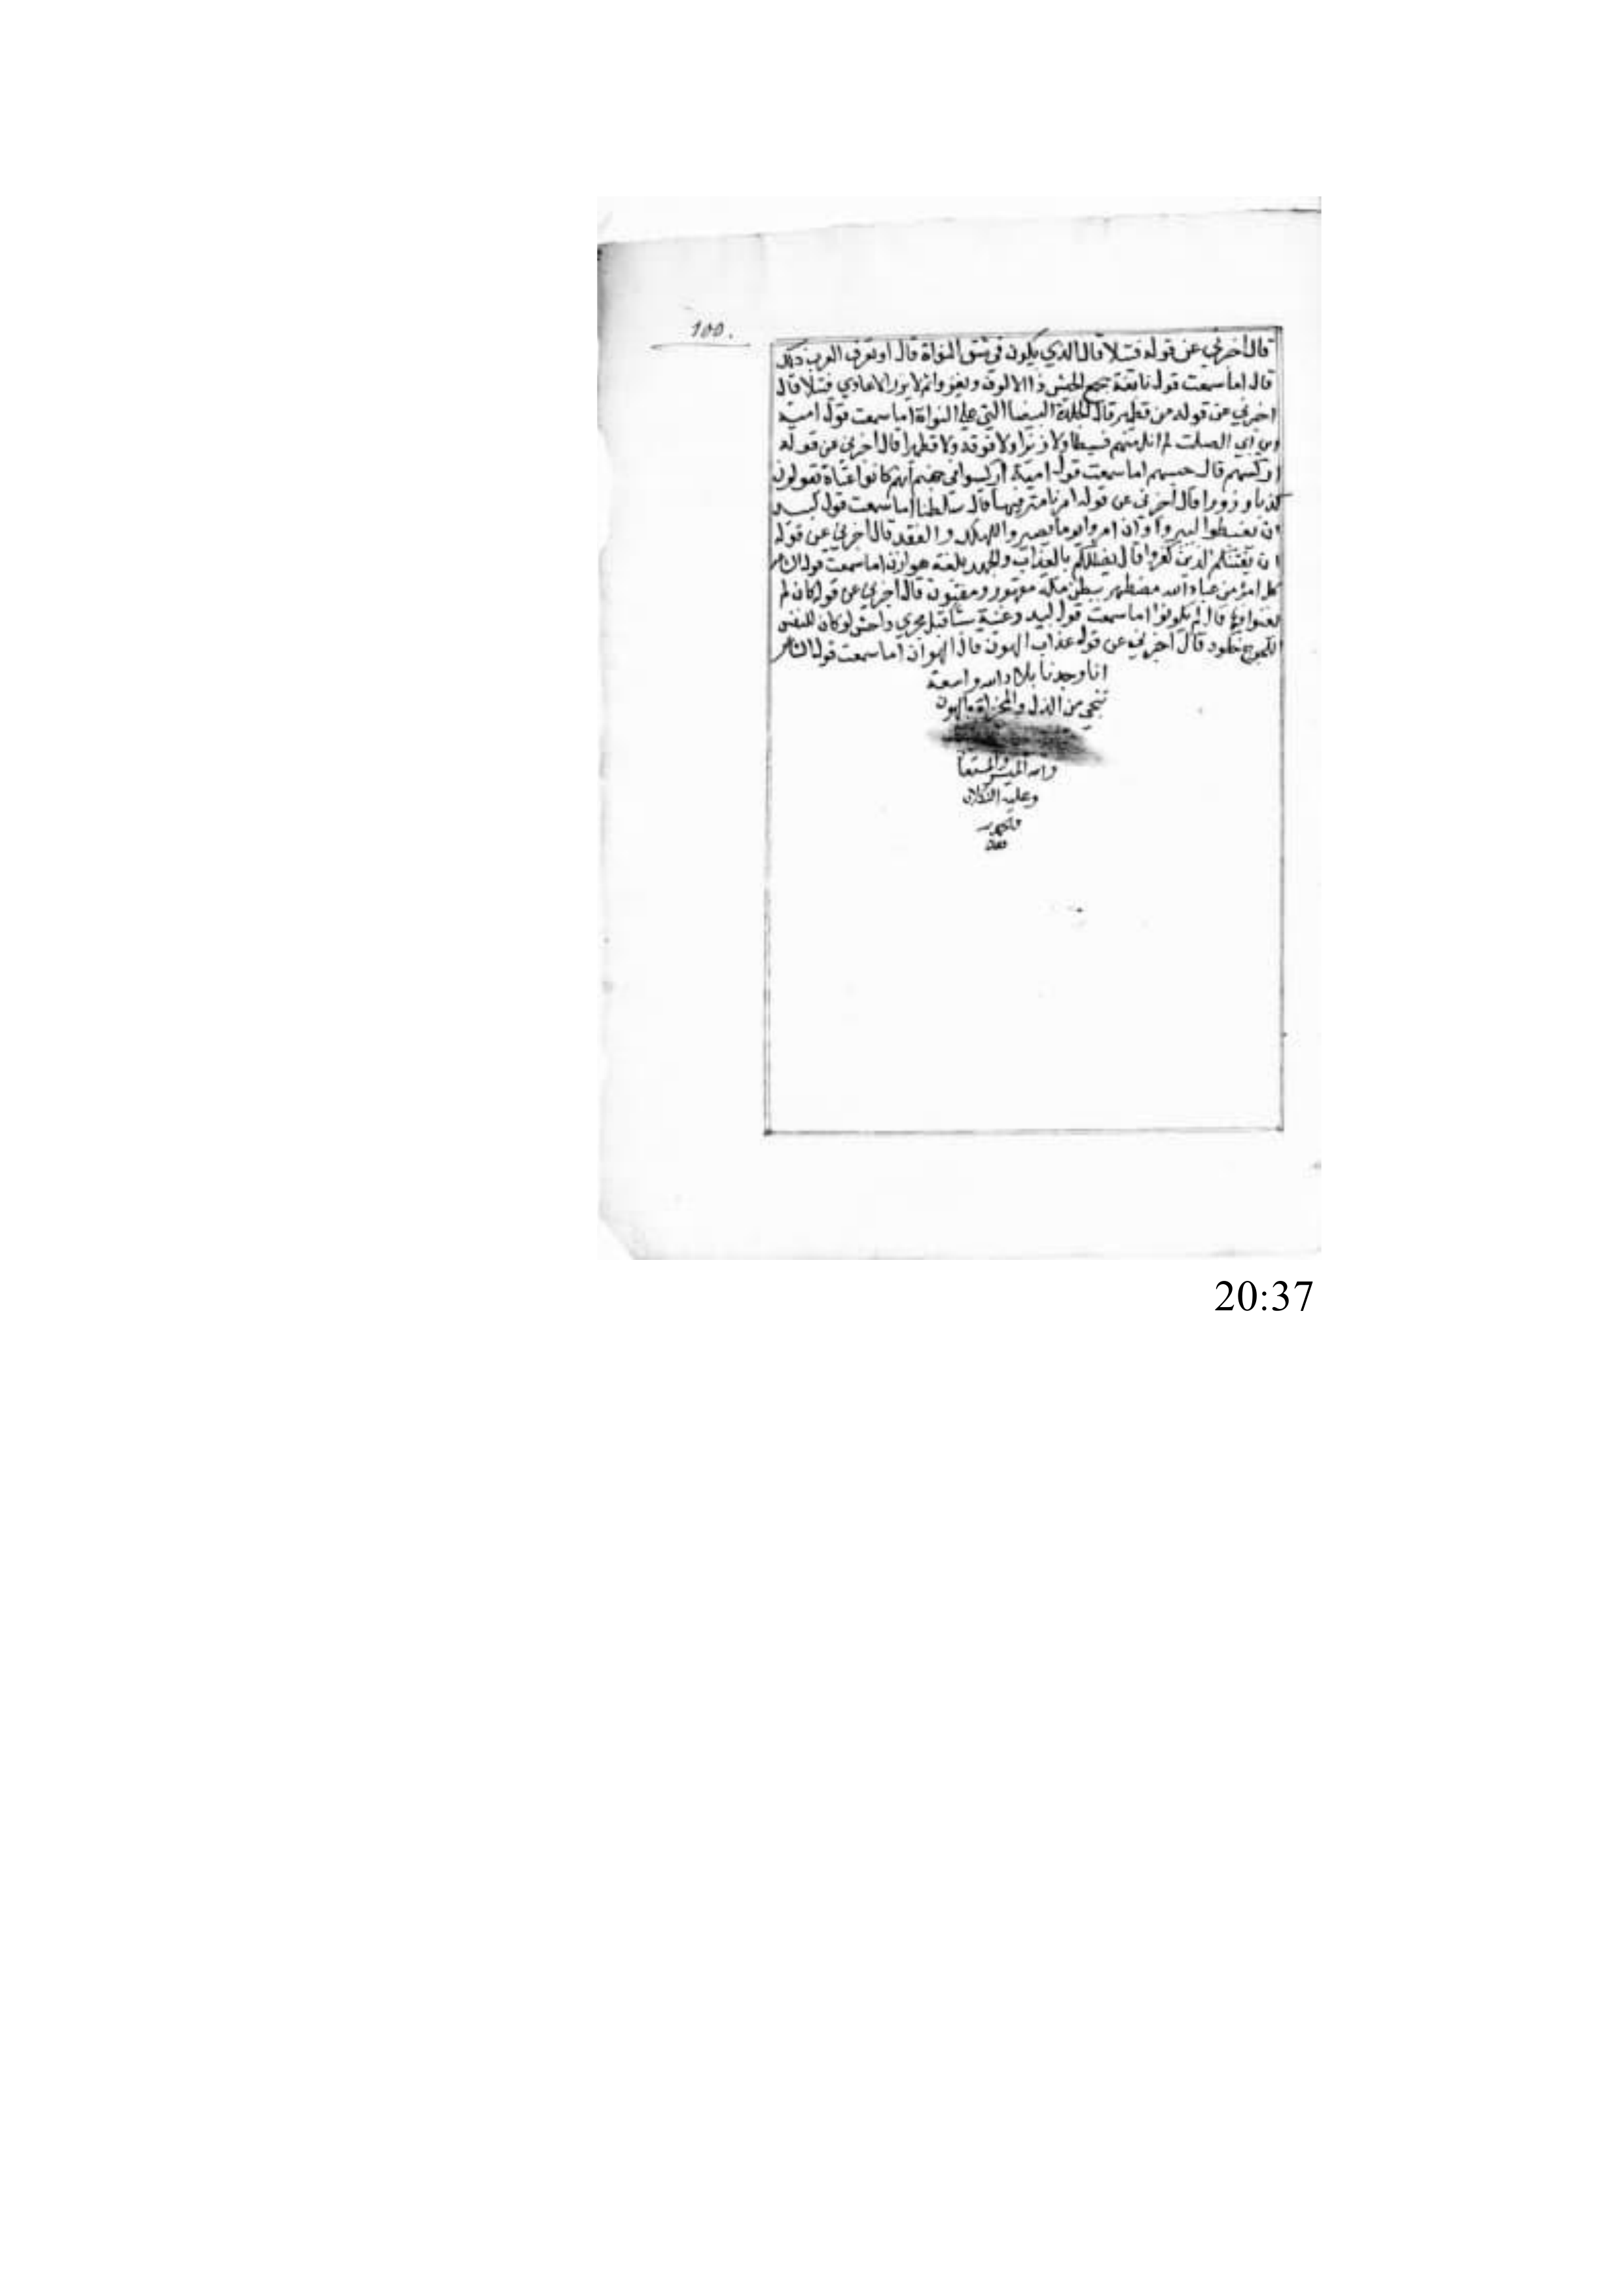 100.
قال اخبرني عن قوله فتيلا قال الذي يكون في شق النواة قال او تعرف العرب ذلك
قال اما سمعت قول نابغة يجمع الجيش ذا الالوف ويغزو ثم لا يرزا الاعادي فتيلا قال
اخبرني عن قوله من قطمير قال الجلدة البيضا التي على النواة اما سمعت قول امية
ابن ابي الصلت لم انل منهم فسيطا ولا زبدا ولا فوفة ولا قطميرا قال اخبرني عن قوله
اركسهم قال حبسهم اما سمعت قول امية اركسوا في جهنم انهم كانوا عتاة تقولون
كذبا وزورا قال اخبرني عن قوله امرنا مترفيها قال سلطنا اما سمعت قول لبيد
ان يغبطوا يسروا وان امروا يوما يصيروا للهلك والفقد قال اخبرني عن قوله
ان يفتنكم الذين كفروا قال يضلكم بالعذاب والجهد بلغة هوازن اما سمعت قول الشاعر
كل امرئ من عباد الله مضطهد ببطن مكة مقهور ومفتون قال اخبرني عن قوله كان لم
يغنوا فيها قال لم يكونوا اما سمعت قول لبيد وغنيت ستا قبل مجرى داحس لو كان للنفس
اللجوج خلود قال اخبرني عن قوله عذاب الهون قال الهوان اما سمعت قول الشاعر
انا وجدنا بلاد الله واسعة
تنجي من الذل والمخزاة والهون
والله الميسر والمستعان
وعليه التكلان
20:37